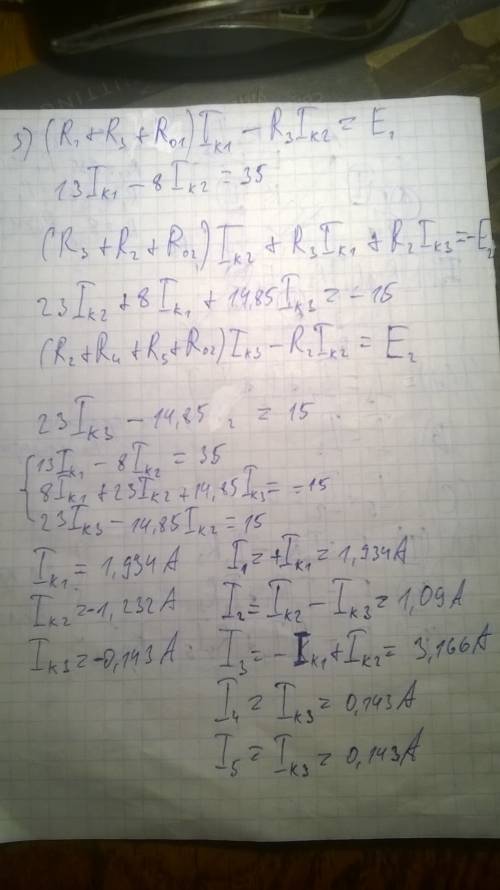 3) (R₁ + R₃ + R₀₁) Iк₁ − R₃Iк₂ = E₁
13Iк₁ − 8Iк₂ = 35
(R₃ + R₂ + R₀₂) Iк₂ + R₃Iк₁ + R₂Iк₃ = −E₂
23Iк₂ + 8Iк₁ + 14,85Iк₃ = −15
(R₂ + R₄ + R₅ + R₀₂) Iк₃ − R₂Iк₂ = E₂
23Iк₃ − 14,85 ₂ = 15
13Iк₁ − 8Iк₂ = 35
8Iк₁ + 23Iк₂ + 14,85Iк₃ = −15
23Iк₃ − 14,85Iк₂ = 15
Iк₁ = 1,934A I₁ = +Iк₁ = 1,934A
Iк₂ = −1,232A I₂ = Iк₂ − Iк₃ = 1,09A
Iк₃ = −0,143A I₃ = −Iк₁ + Iк₂ = 3,166A
I₄ = Iк₃ = 0,143A
I₅ = Iк₃ = 0,143A